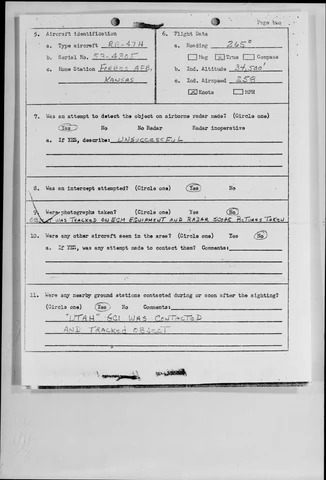 Page two
5. Aircraft identification
a. Type aircraft RB-47H
b. Serial No. 53-4305
c. Home Station FORBES AFB,
KANSAS
6. Flight Data
a. Heading 265°
Mag True Compass
b. Ind. Altitude 34,500'
c. Ind. Airspeed 258
Knots MPH
7. Was an attempt to detect the object on airborne radar made? (Circle one)
Yes No No Radar Radar inoperative
a. If YES, describe: UNSUCCESSFUL
8. Was an intercept attempted? (Circle one) Yes No
9. Were photographs taken? (Circle one) Yes No
WAS TRACKED ON ECM EQUIPMENT AND RADAR SCOPE PICTURES TAKEN
10. Were any other aircraft seen in the area? (Circle one) Yes No
a. If YES, was any attempt made to contact them? Comments:
11. Were any nearby ground stations contacted during or soon after the sighting?
(Circle one) Yes No Comments:
"UTAH" GCI WAS CONTACTED
AND TRACKED OBJECT